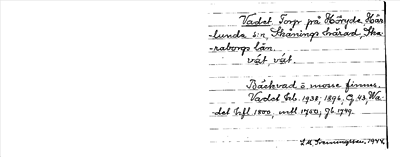 Vadet Torp på Höryda Här-
lunda s:n, Skånings härad, Ska-
raborgs län.
våt, våt.
Bäckvad o mosse finnes.
Vadet Jrb. 1938, 1896, G. 43, Wa-
det hfl 1800, mtl 1750, Jb 1749.
1944.